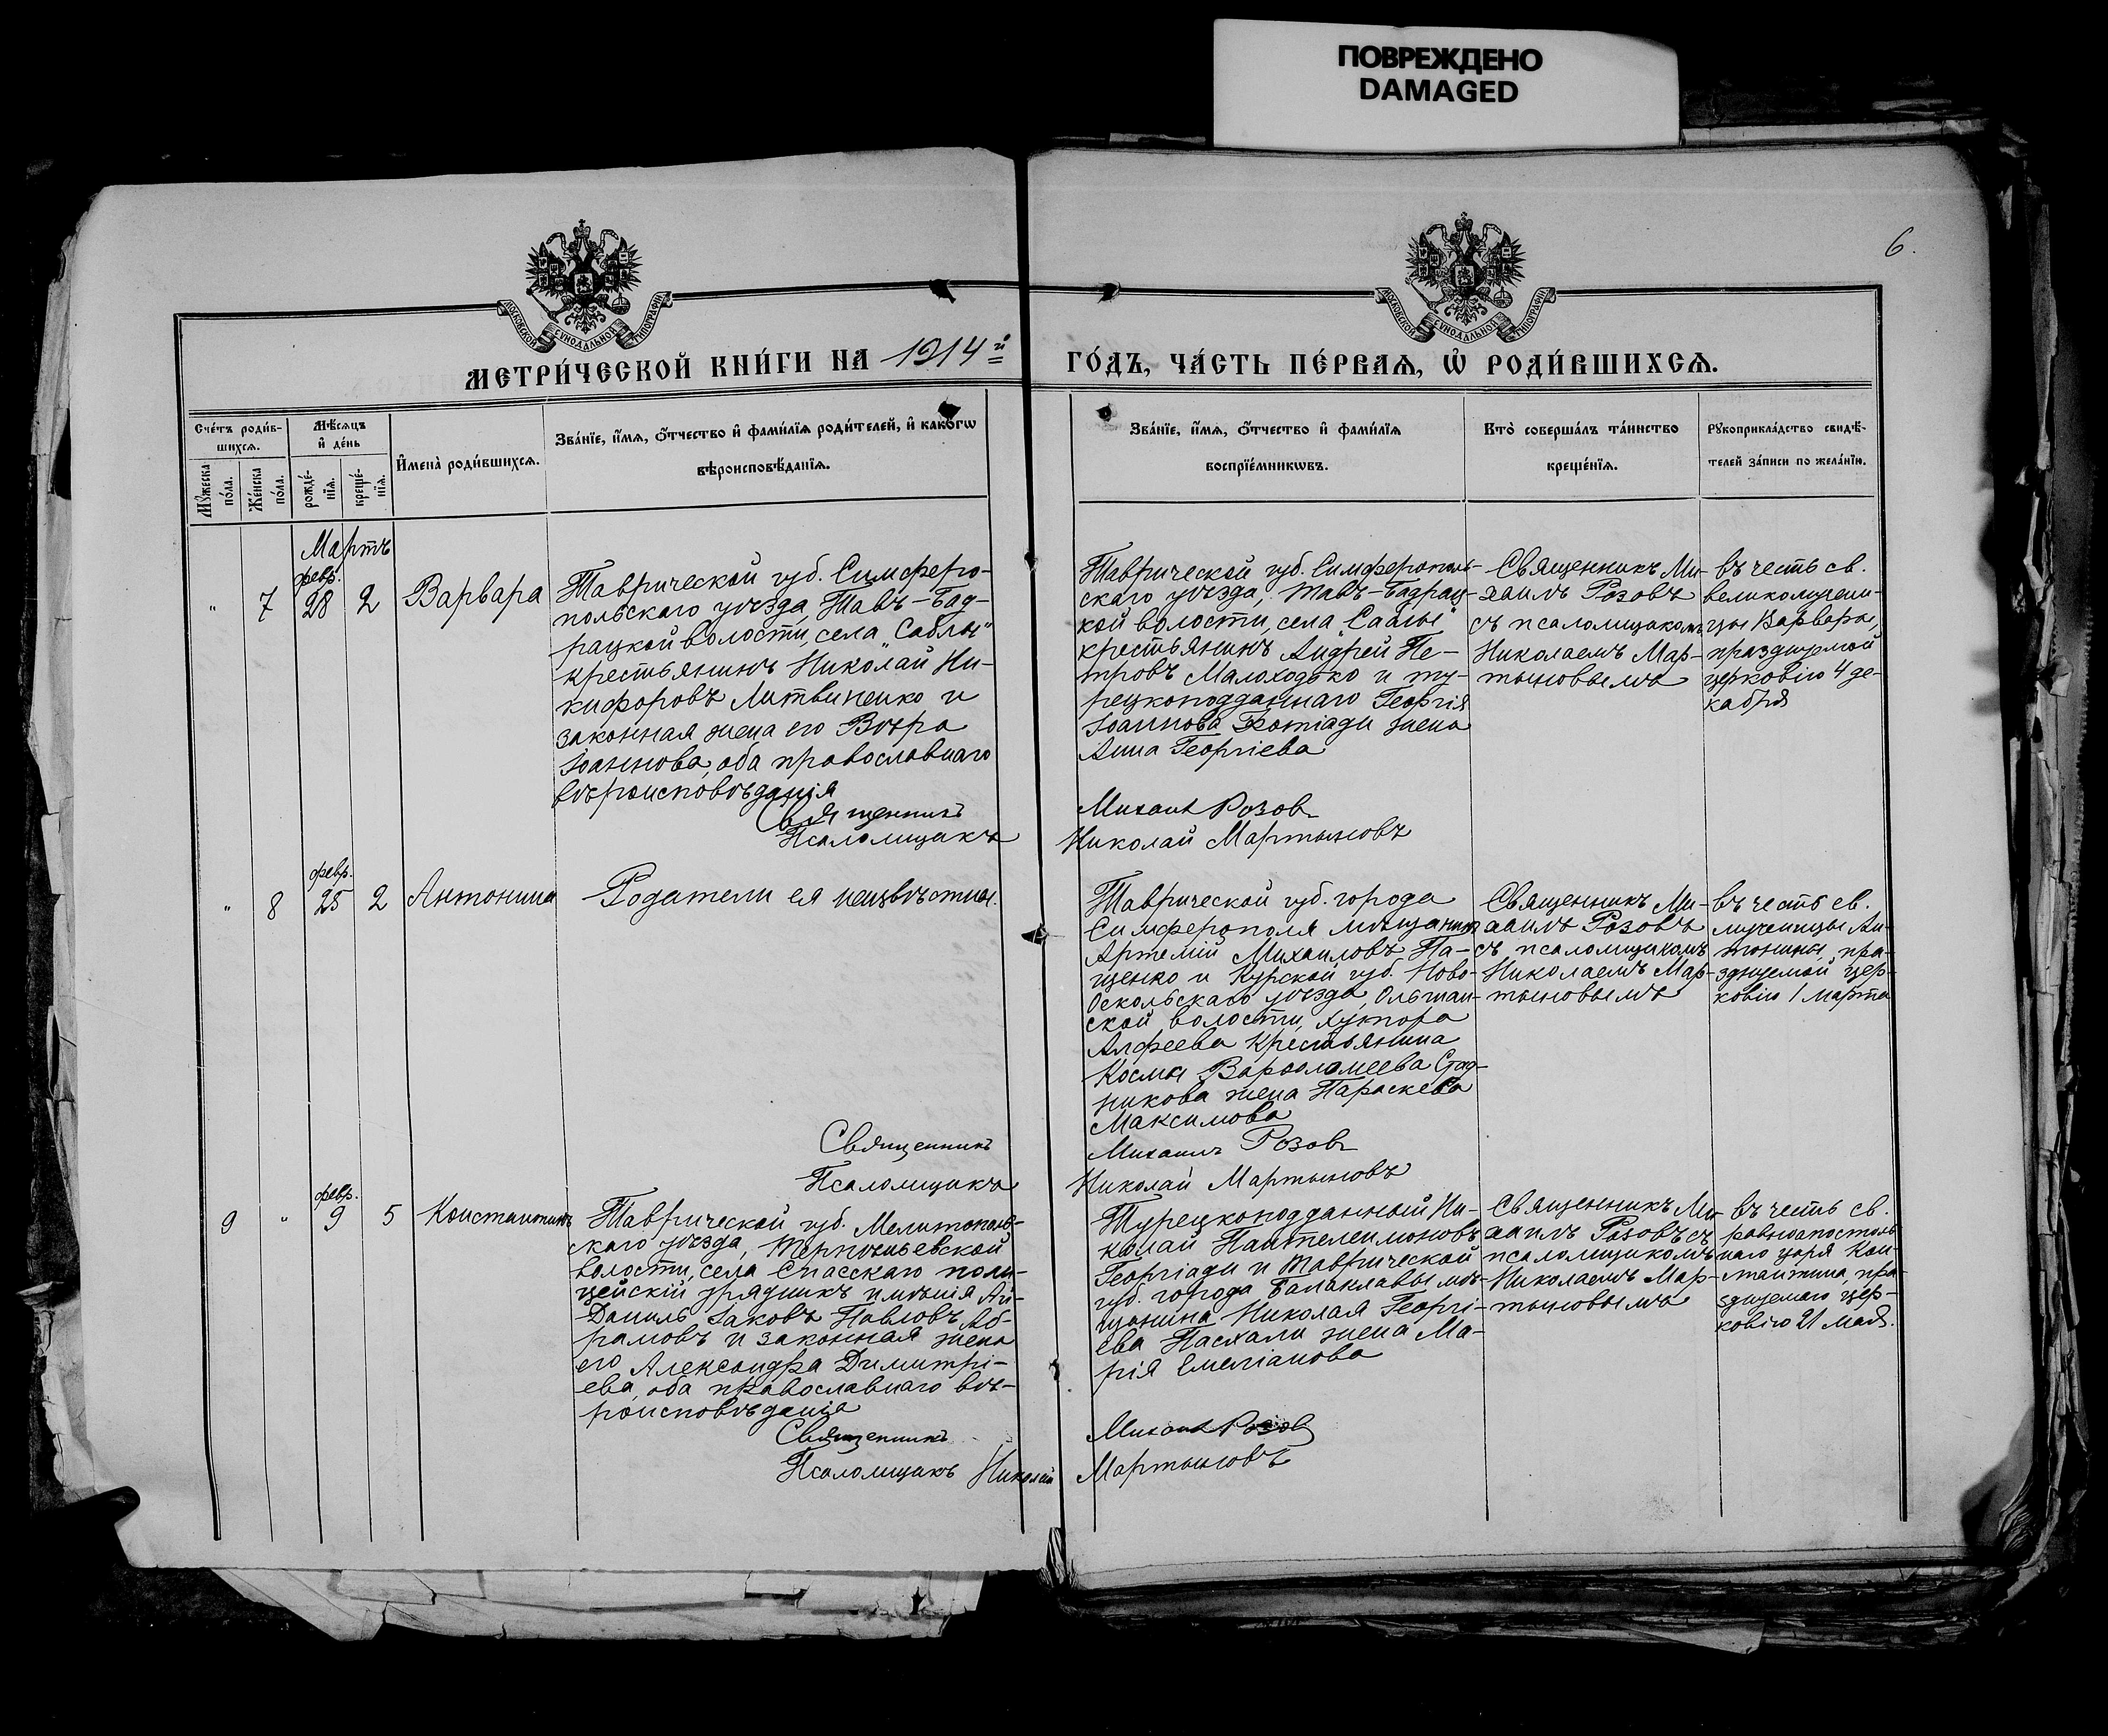 ПОВРЕЖДЕНО
DAMAGED
6.
МОСКОВСКОЙ СѴНОДАЛЬНОЙ ТИПОГРАФІИ
МОСКОВСКОЙ СѴНОДАЛЬНОЙ ТИПОГРАФІИ
МЕТРИ́ЧЕСКОЙ КНИ́ГИ НА 1914й
ГО́ДЪ, ЧА́СТЬ ПЕ́РВАѦ, Ѡ҆ РОДИ́ВШИХСѦ.
Сче́тъ роди́в-
шихсѧ.
Мꙋ́жеска
по́ла.
Же́нска
по́ла.
Мѣ́сѧцъ
и҆ де́нь
рожде́-
нїѧ.
креще́-
нїѧ.
И҆мена̀ роди́вшихсѧ.
Зва́нїе, и҆́мѧ, ѻ҆́тчество и҆ фами́лїѧ роди́телей, и҆ како́гѡ
вѣроисповѣ́данїѧ.
Зва́нїе, и҆́мѧ, ѻ҆́тчество и҆ фами́лїѧ
воспрїе́мникѡвъ.
Кто̀ соверша́лъ та́инство
креще́нїѧ.
Рꙋкоприкла́дство свидѣ́-
телей за́писи по жела́нїю.
Мартъ
" 7 февр. 28 2 Варвара
Таврической губ. Симферо-
польскаго уѣзда, Тавъ-Бад-
рацкой волости, села „Саблы"
крестьянинъ Николай Ни-
кифоровъ Литвиненко и
законная жена его Вѣра
Іоаннова, оба православнаго
вѣроисповѣданія
Священникъ
Псаломщикъ
Таврической губ. Симферополь-
скаго уѣзда, Тавъ-Бадрац-
кой волости, села Саблы
крестьянинъ Андрей Пе-
тровъ Малоходько и ту-
рецкоподданнаго Георгія
Іоаннова Фотіади жена
Анна Георгіева
Михаил Розов
Николай Мартыновъ
Священникъ Ми-
хаилъ Розовъ
съ псаломщикомъ
Николаемъ Мар-
тыновымъ
въ честь св.
великомучени-
цы Варвары,
празднуемой
церковію 4 де-
кабря
" 8 февр. 25 2 Антонина
Родители ея неизвѣстны.
Священникъ
Псаломщикъ
Таврической губ. города
Симферополя мѣщанинъ
Артемій Михаиловъ Па-
щенко и Курской губ. Ново-
Оскольскаго уѣзда, Ольшан-
ской волости, хутора
Алфеева крестьянина
Космы Варѳоломеева Стад-
никова жена Параскева
Максимова
Михаилъ Розов
Николай Мартыновъ
Священникъ Ми-
хаилъ Розовъ
съ псаломщикомъ
Николаемъ Мар-
тыновымъ
въ честь св.
мученицы Ан-
тонины, пра-
зднуемой цер-
ковію 1 марта
9 " февр. 9 5 Константинъ
Таврической губ. Мелитополь-
скаго уѣзда,
волости, села Спасскаго поли-
цейскій урядникъ имѣнія Ай-
Даниль Іаковъ Павловъ Аб-
рамовъ и законная жена
его Александра Димитрі-
ева, оба православнаго вѣ-
роисповѣданія
Священникъ
Псаломщикъ Николай
Турецкоподданный Ни-
колай Пантелеимоновъ
Георгіади и Таврической
губ. города Балаклавы мѣ-
щанина Николая Георгі-
ева Пасхали жена Ма-
рія Емеліанова
Михаил Розов
Мартыновъ
Священникъ Ми-
хаилъ Розовъ съ
псаломщикомъ
Николаемъ Мар-
тыновымъ
въ честь св.
равноапостоль
наго царя Кон-
стантина, пра-
зднуемаго цер-
ковію 21 мая.